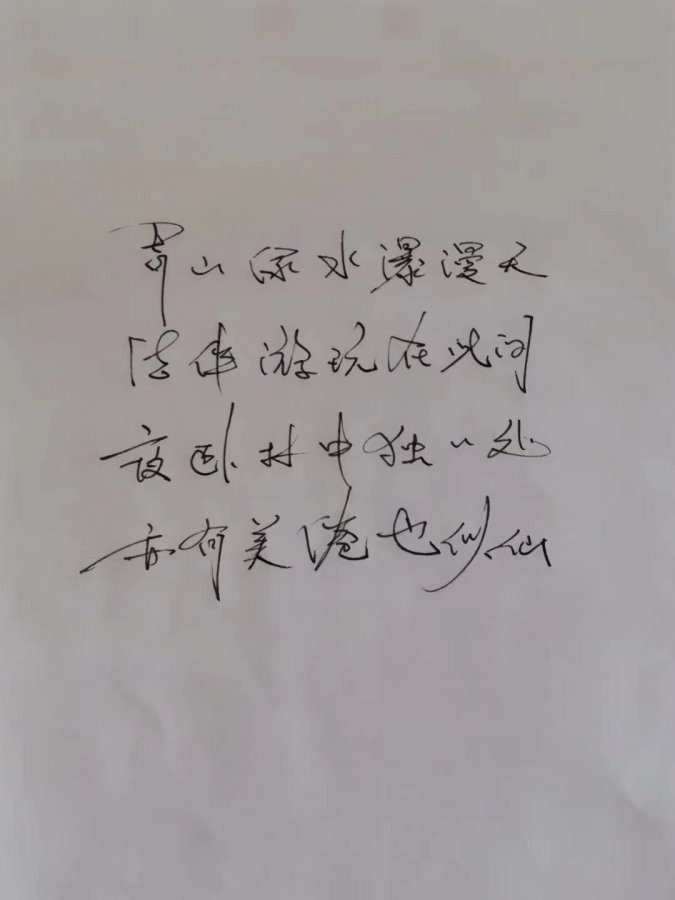 青山绿水瀑漫天
结伴游玩在此间
夜卧林中独一处
亦有美境也似仙